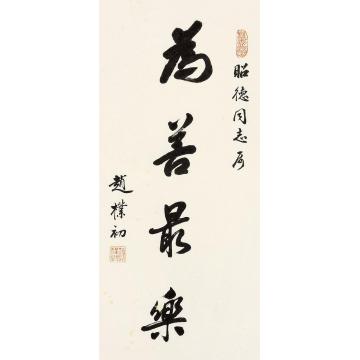 昭德同志属
為善最樂
趙樸初